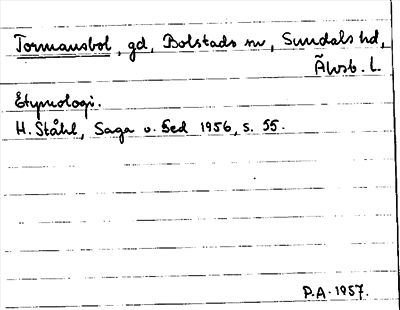 Tormansbol, gd, Bolstads sn, Sundals hd,
Älvsb. l.
Etymologi.
H. Ståhl, Saga o. Sed 1956, s. 55.
P.A. 1957.